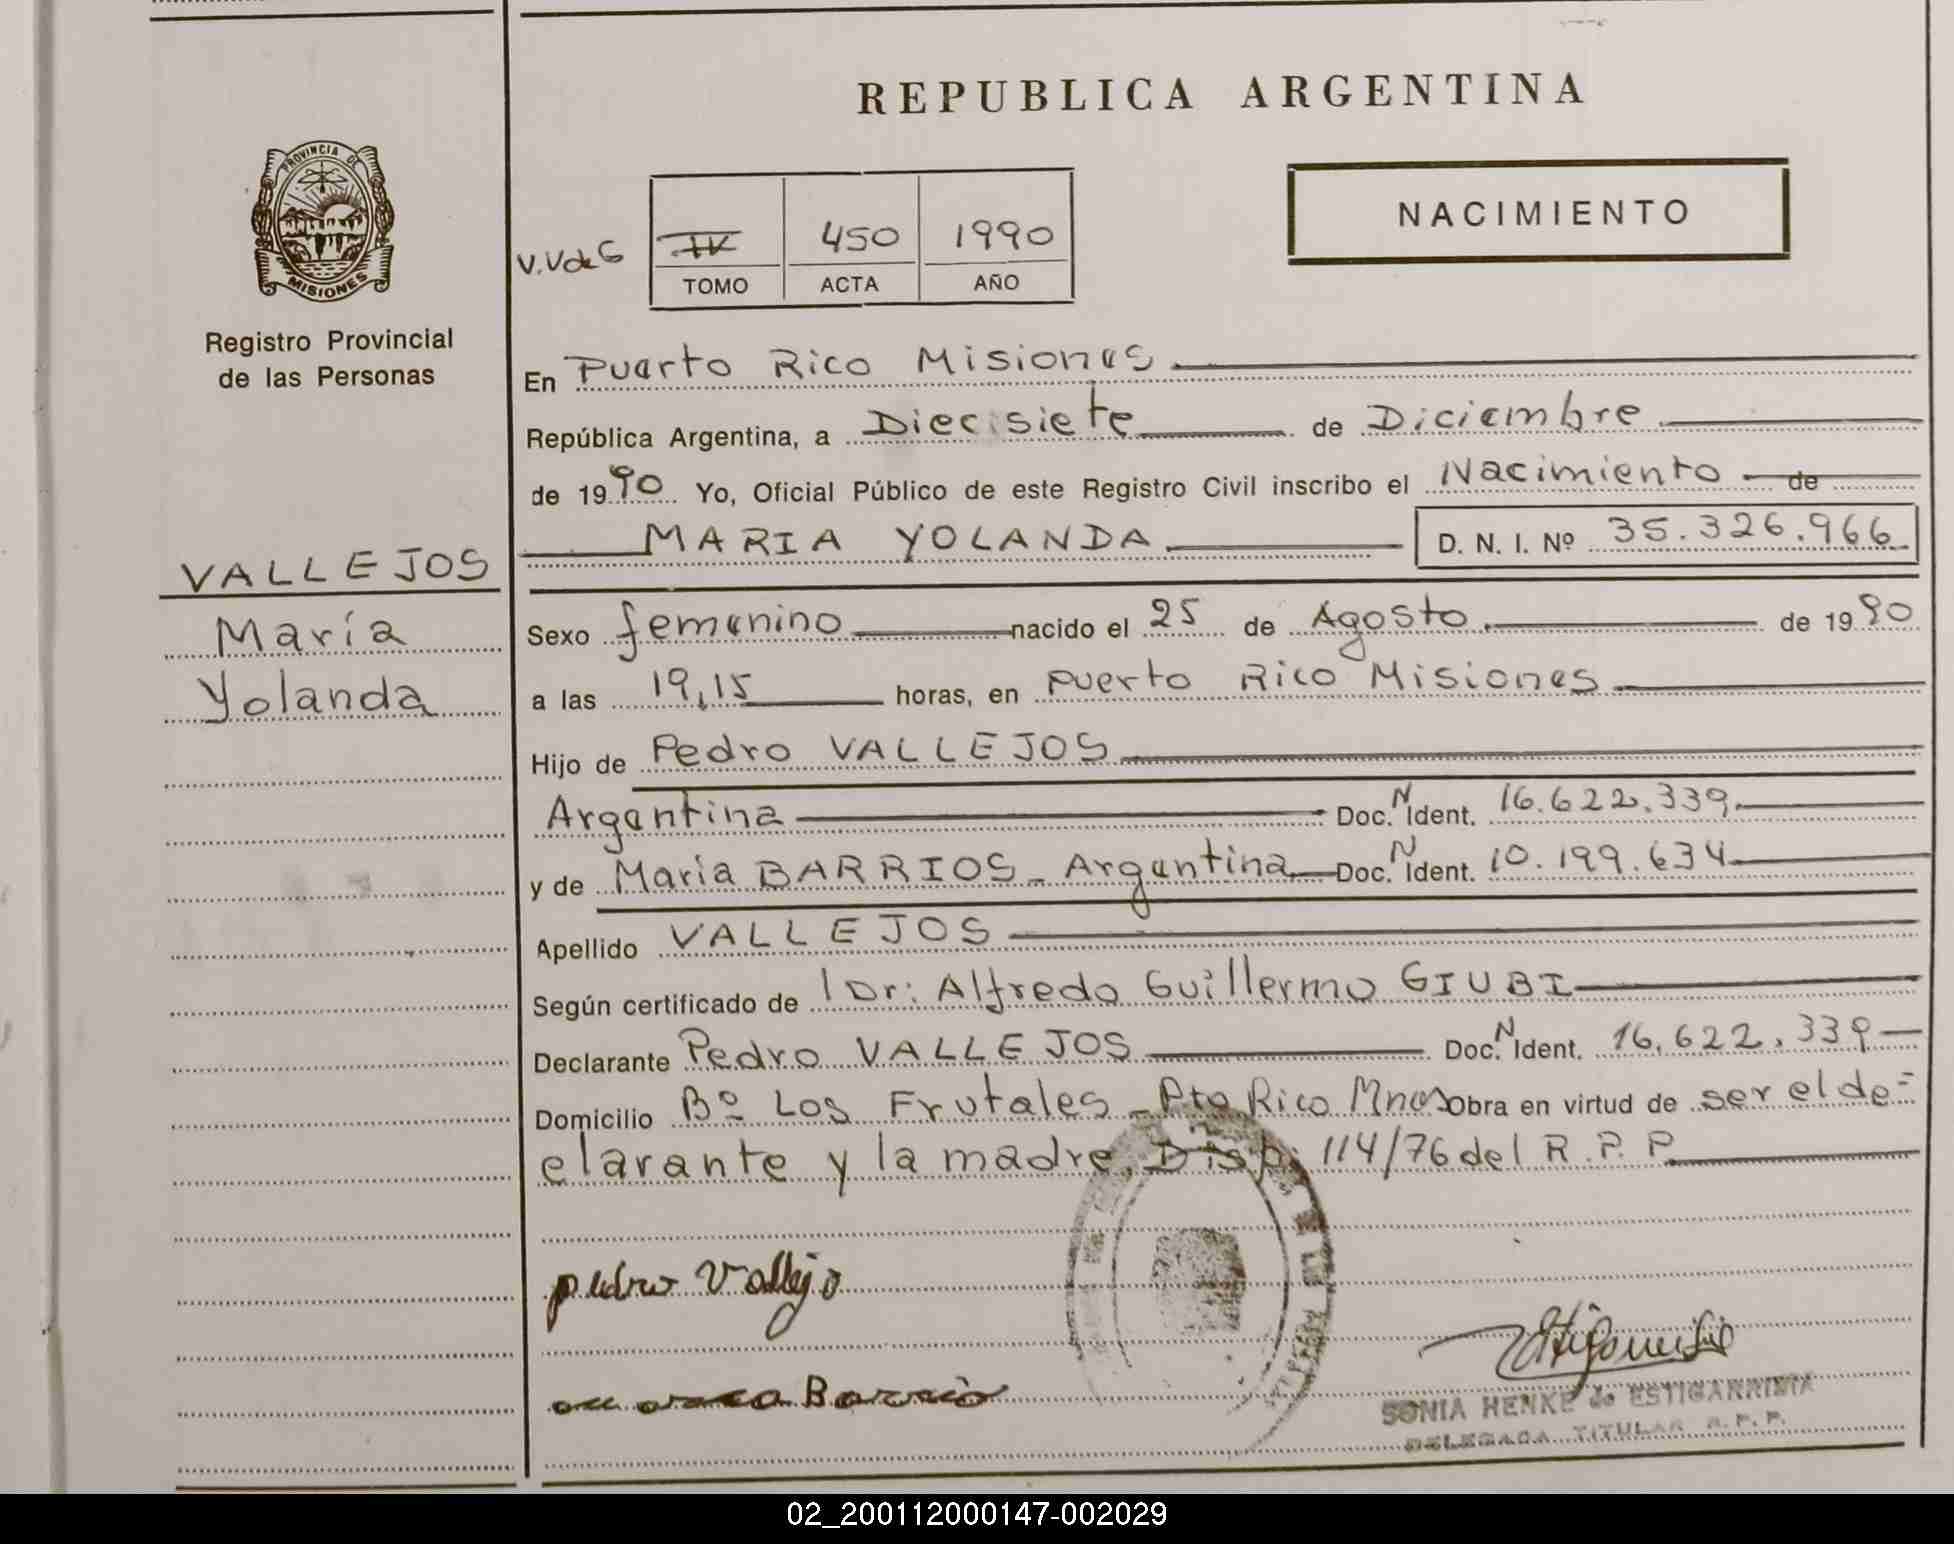 REPUBLICA ARGENTINA
PROVINCIA DE
MISIONES
Registro Provincial
de las Personas
V.VdeG
IV 450 1990
TOMO ACTA AÑO
NACIMIENTO
En Puerto Rico Misiones
República Argentina, a Diecisiete de Diciembre
de 1990 Yo, Oficial Público de este Registro Civil inscribo el Nacimiento de
MARIA YOLANDA D. N. I. Nº 35.326.966
VALLEJOS
María
Yolanda
Sexo femenino nacido el 25 de Agosto de 1990
a las 19,15 horas, en Puerto Rico Misiones
Hijo de Pedro VALLEJOS
Argentina Doc. N Ident. 16.622.339
y de María BARRIOS - Argentina Doc. N Ident. 10.199.634
Apellido VALLEJOS
Según certificado de Dr: Alfredo Guillermo GIUBI
Declarante Pedro VALLEJOS Doc. N Ident. 16.622.339
Domicilio Bº Los Frutales - Pto Rico Mnes Obra en virtud de ser el de=
clarante y la madre. Disp. 114/76 del R.P.P.
pedro Vallejo
Barrio
SONIA HENKE de ESTIGARRIBIA
DELEGADA TITULAR R.P.P.
02_200112000147-002029